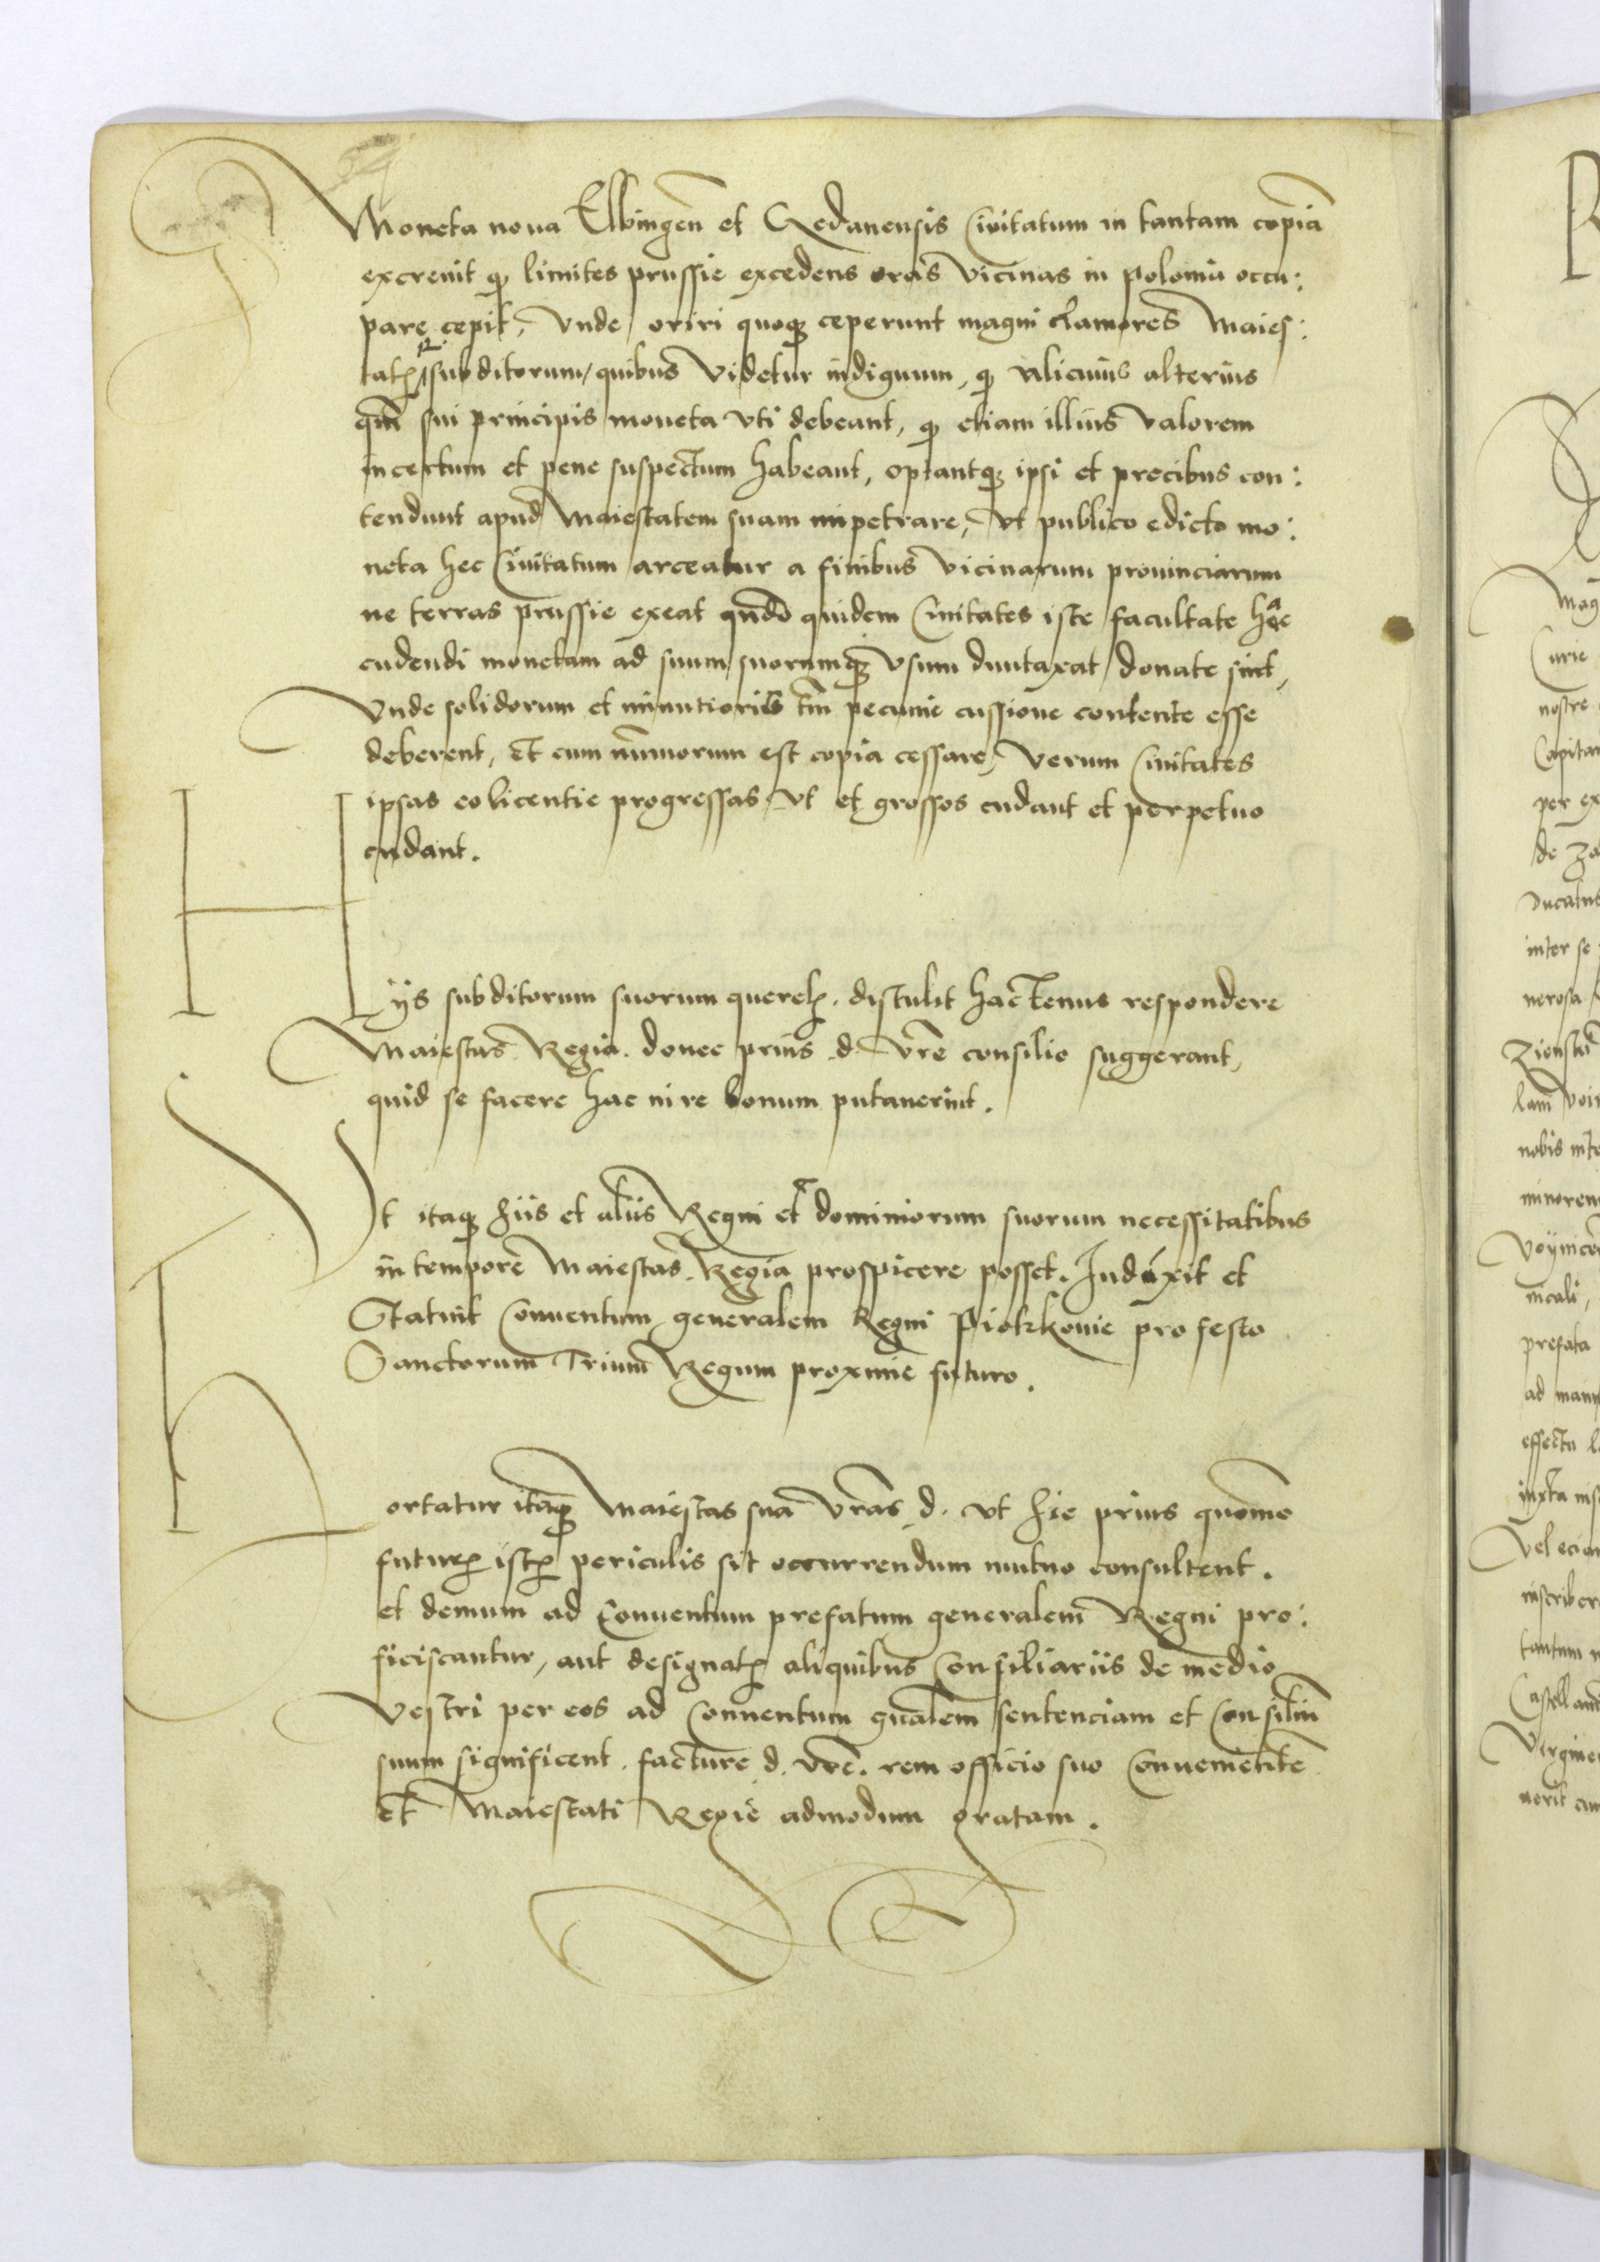 Moneta noua Elbingen et Gedanensis Ciuitatum in tantam copia
excreuit q limites prussie excedens oras vicinas in polonia occu:
pare cepit, Vnde oriri quoq ceperunt magni clamores Maies:
tatis R subditorum, quibus videtur indignum, q alicuius alterius
qm sui principis moneta vti debeant, q etiam illius valorem
incertum et pene suspectum habeant, optantq ipsi et precibus con:
tendunt apud Maiestatem suam impetrare, vt publico edicto mo:
neta hec Ciuitatum arceatur a finibus vicinarum prouinciarum
ne terras prussie exeat qndo quidem Ciuitates iste facultate hac
cudendi monetam ad suum suorumq vsum duntaxat donate sint,
Vnde solidorum et minutioris tm pecunie cussione contente esse
deberent, Et cum numorum est copia cessare, Verum Ciuitates
ipsas eo licentie progressas vt et grossos cudant et perpetuo
cudant.
Hijs subditorum suorum querelis distulit hactenus respondere
Maiestas Regia. donec prius d. vre consilio suggerant,
quid se facere hac in re bonum putauerint.
Vt itaq hiis et aliis Regni et dominiorum suorum necessitatibus
in tempore Maiestas Regia prospicere posset. Indixit et
Statuit Conuentum generalem Regni Piotrkouie pro festo
Sanctorum Trium Regum proxime futuro.
Hortatur itaq Maiestas sua vras d. vt hic prius quomo
futuris istis periculis sit occurrendum mutuo consultent.
et demum ad Conuentum prefatum generalem Regni pro:
ficiscantur, aut designatis aliquibus Consiliariis de medio
vestri per eos ad Conuentum gnalem sentenciam et Consilium
suum significent. facture d. vre. rem officio suo Conuenientem
et Maiestati Regie admodum gratam.